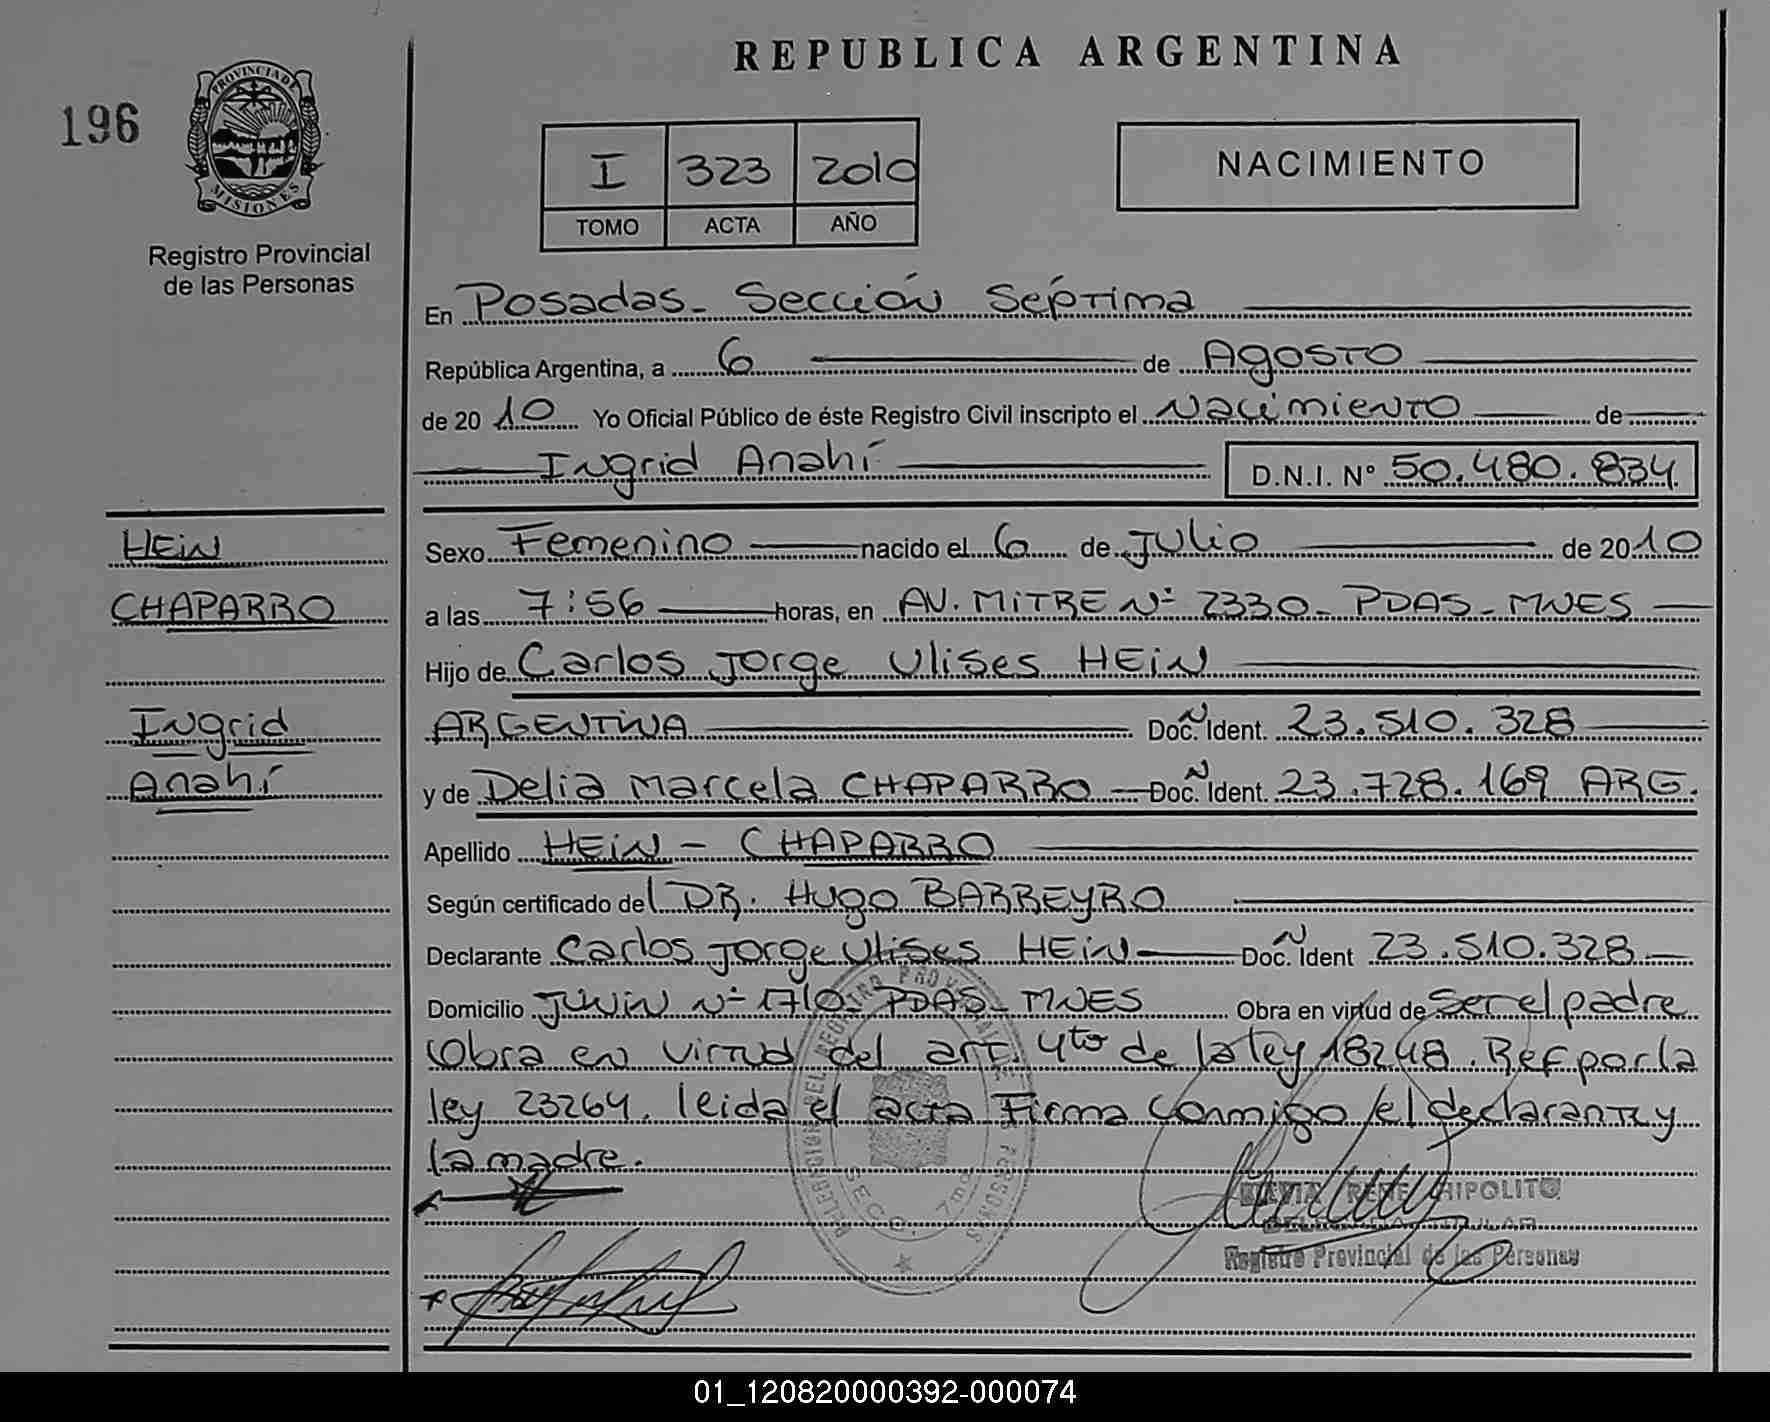 REPUBLICA ARGENTINA
196
PROVINCIA DE MISIONES
Registro Provincial
de las Personas
I 323 2010
TOMO ACTA AÑO
NACIMIENTO
En Posadas - Sección Séptima
República Argentina, a 6 de Agosto
de 2010 Yo Oficial Público de éste Registro Civil inscripto el Nacimiento de
Ingrid Anahí D.N.I. N° 50.480.834
HEiN
CHAPARRO
Ingrid
Anahí
Sexo Femenino nacido el 6 de Julio de 2010
a las 7:56 horas, en AV. MiTRE N° 2330 - PDAS - MNES
Hijo de Carlos Jorge Ulises HEiN
ARGENTINA Doc. Ident. 23.510.328
y de Delia Marcela CHAPARRO Doc. Ident. 23.728.169 ARG.
Apellido HEiN - CHAPARRO
Según certificado del DR. Hugo BARREYRO
Declarante Carlos Jorge Ulises HEiN Doc. Ident 23.510.328
Domicilio JUNiN N° 1710. PDAS - MNES Obra en virtud de Ser el padre
Obra en virtud del art. 4to de la ley 18248. Ref por la
ley 23264. leida el acta Firma conmigo el declarante y
la madre.
DELEGACION DEL REGISTRO PROVINCIAL DE LAS PERSONAS
SECC. 7ma
RENE HIPOLITO
Registro Provincial de las Personas
01_120820000392-000074